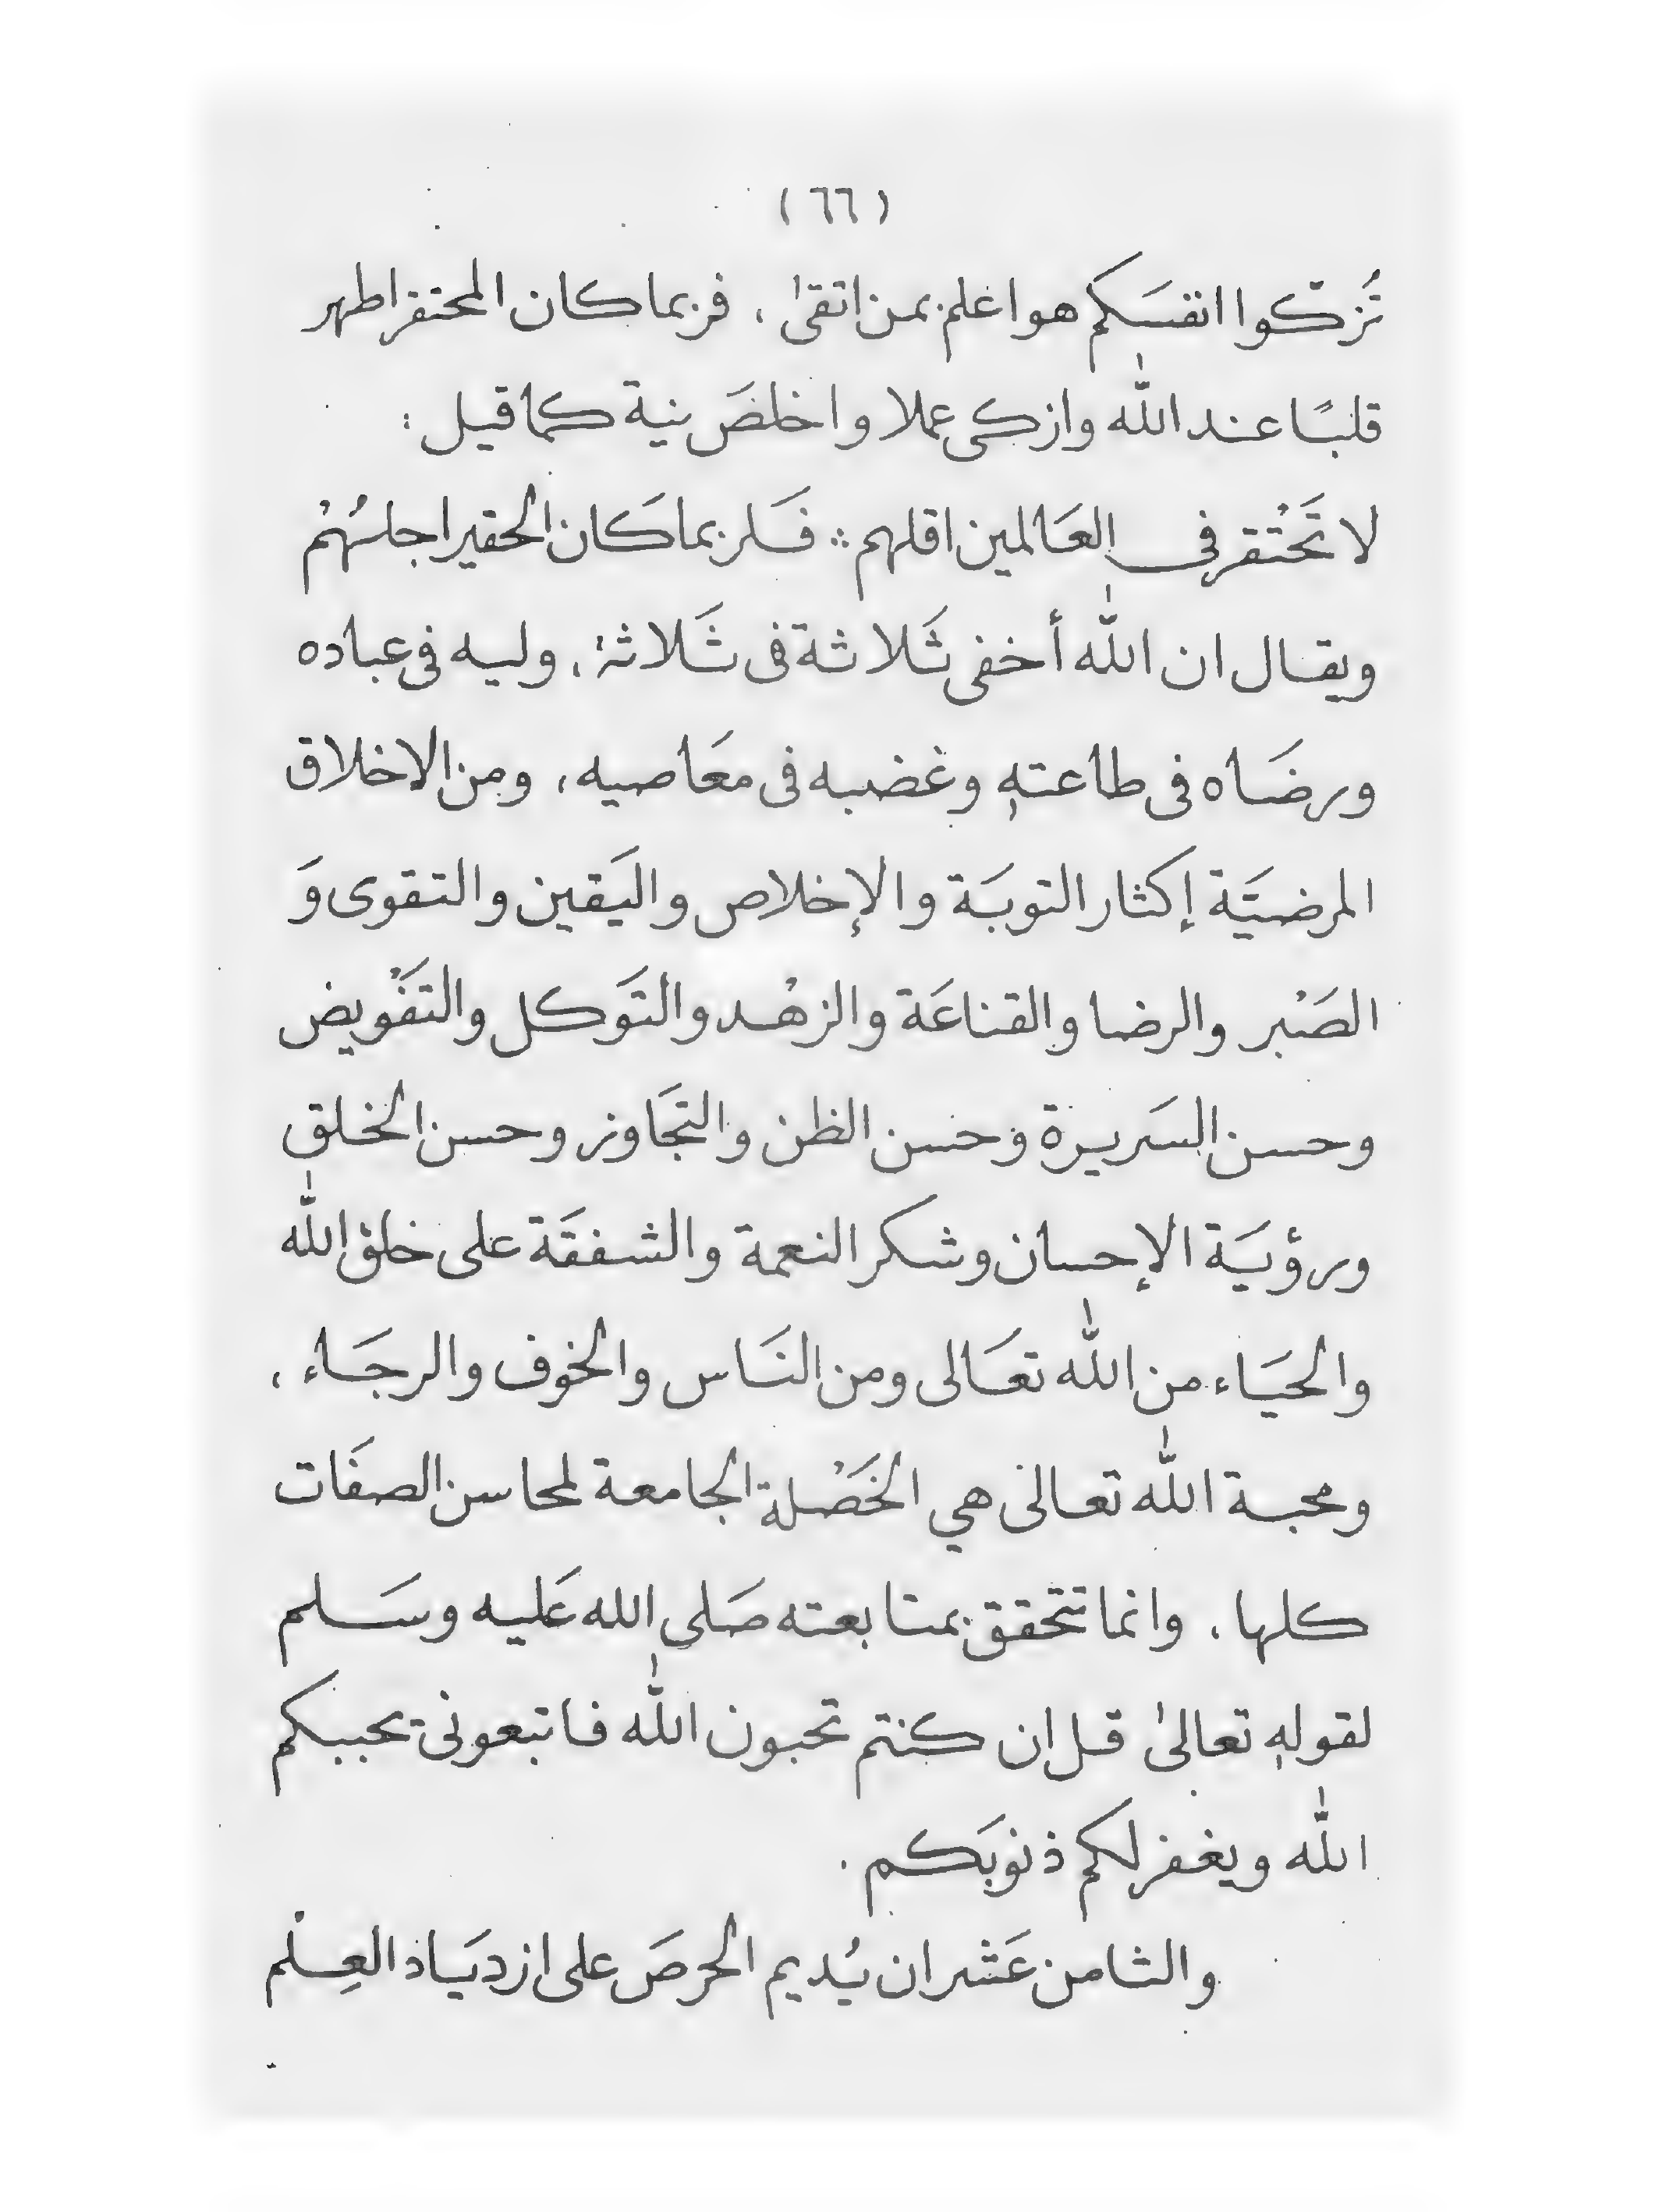 ( ٦٦ )
تُزكّوا انفسَكم هو اعلم بمن اتقىٰ ، فربما كان المحتقر اطهر
قلبًا عند الله وازكى عملا واخلصَ نية كما قيل :
لا تَحْتقر في العَالمين اقلهم ؞ فَلربما كَان الحقير اجلَّهُمْ
ويقال ان الله أخفى ثَلاثة فى ثَلاثة ، وليه فى عباده
ورضَاه فى طاعته وغضبه فى معَاصيه ، ومن الاخلاق
المرضيَّة إكثار التوبَة والإخلاص واليَقين والتقوى وَ
الصَبْر والرضا والقناعَة والزهْد والتَوكل والتَفْويض
وحسن السَريرة وحسن الظن والتجَاوز وحسن الخلق
ورؤيَة الإحسان وشكر النعمة والشفقَة على خلق الله
والحيَاء من الله تعَالى ومن النَاس والخوف والرجَاء ،
ومحبة الله تعالى هي الخَصْلة الجامعة لمحاسن الصفَات
كلها ، وانما تتحقق بمتابعته صَلى الله عَليه وسَلم
لقوله تعالىٰ قل إن كنتم تحبون الله فاتبعونى يحببكم
الله ويغفر لكم ذنوبَكم .
والثامن عَشر ان يُديم الحرصَ على ازديَاد العِلْم